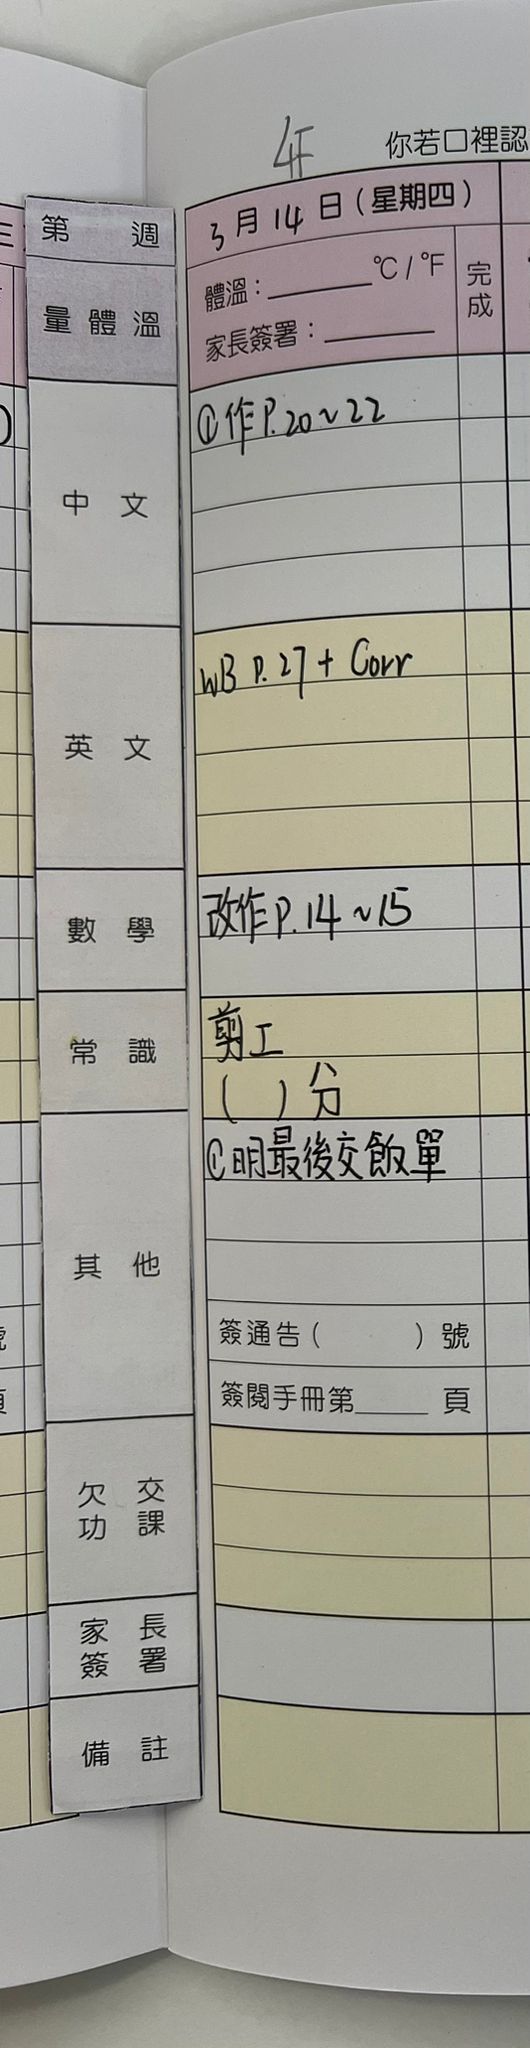 4F
你若口裡認
3月14日(星期四)
第 週
體溫：______°C/°F
完成
家長簽署：______
量體溫
①作P.20~22
中文
WB P.27 + Corr
英文
改作P.14~15
數學
剪工
常識
( )分
①明最後交飯單
其他
簽通告( )號
簽閱手冊第____頁
欠交
功課
家長
簽署
備註